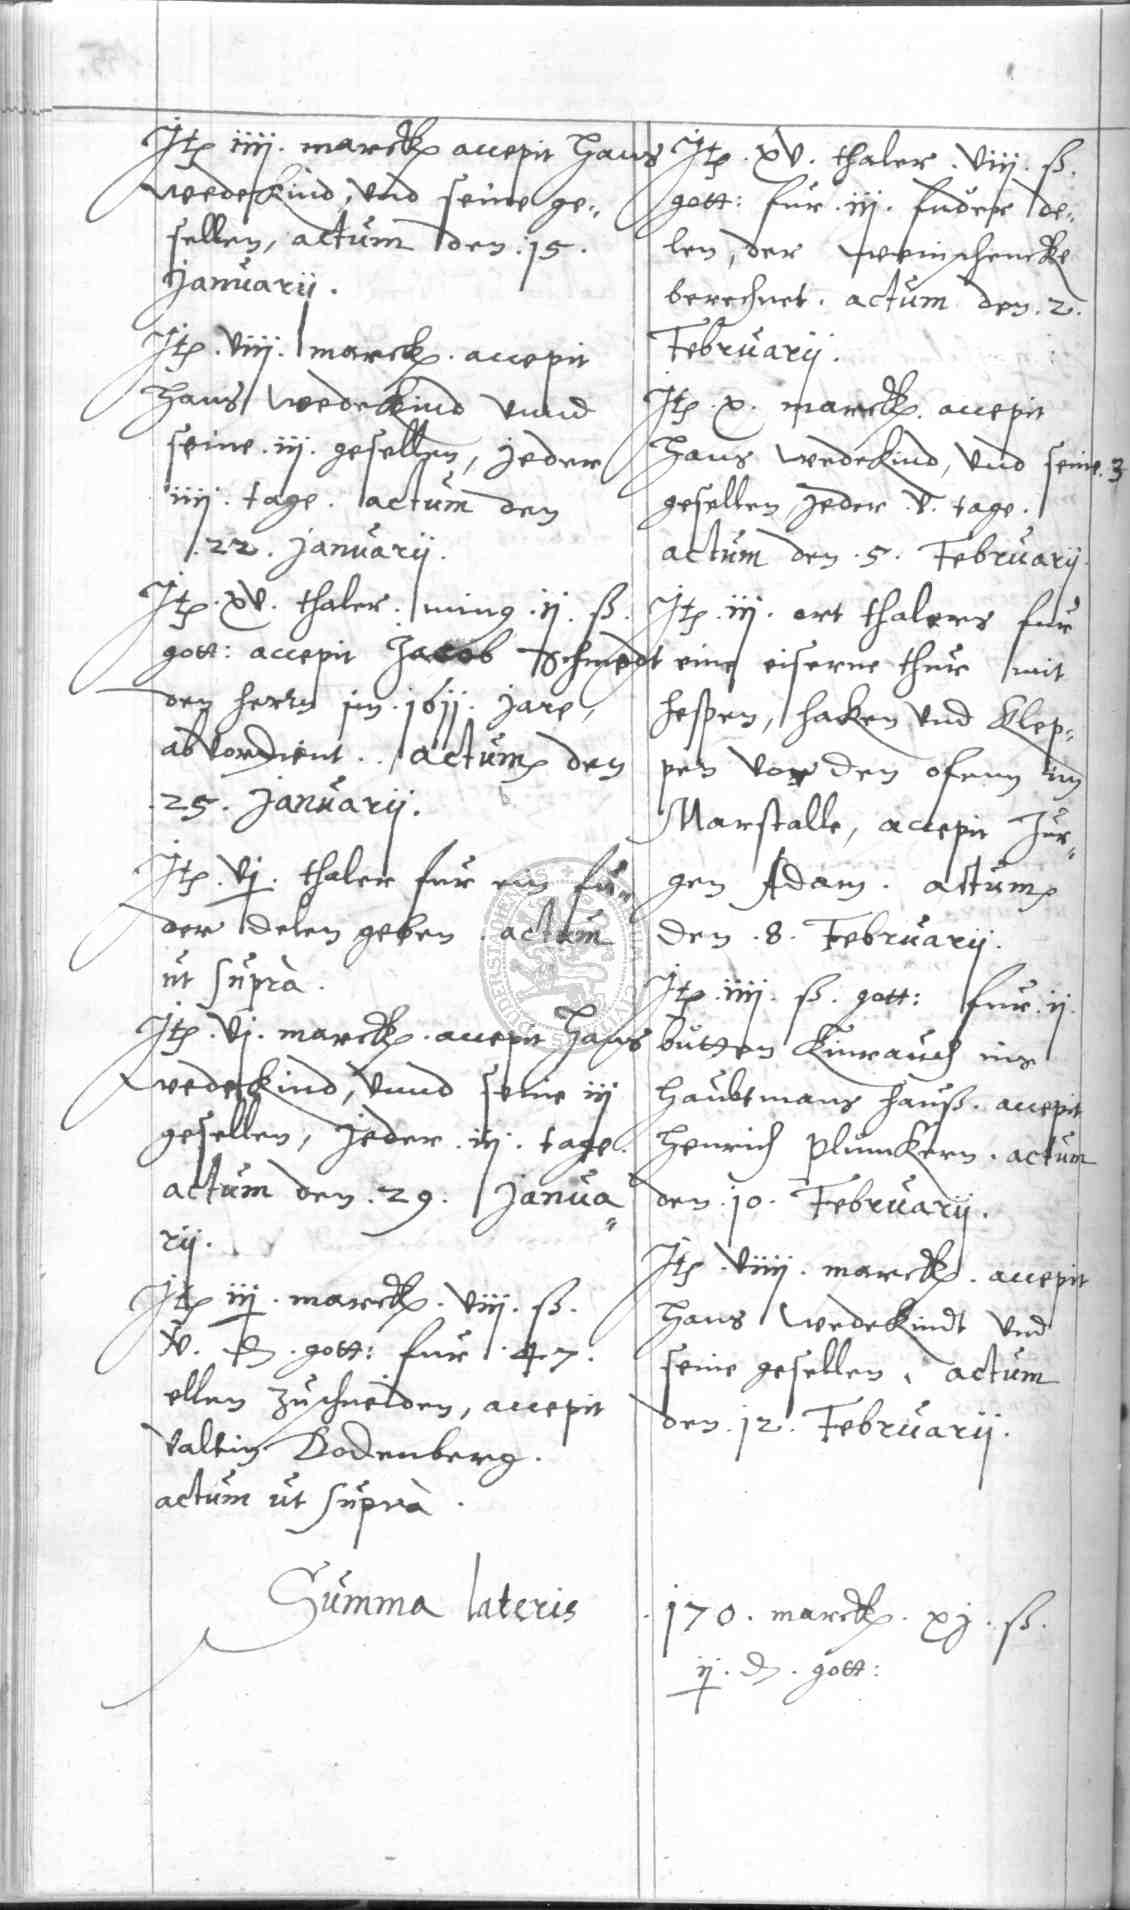 Itē iiij. marck accepit Hans
wedekind, und seine ge„
sellen, actum den .15.
Januarij.
Itē .viij. marck. accepit
Hans wedekind unnd
seine .iij. gesellen, jeder
iiij. tage. actum den
.22. Januarij.
Itē .xv. thaler. ming .ij. ß.
gott: accepit Jacob Schmedt
den herrn im .1611. jare,
abvordient.. actum den
.25. Januarij.
Itē .vj. thaler fur ein fu„
der delen geben. actum
ut suprà.
Itē .vj. marck. accepit Hans
wedekind, unnd seine iij
gesellen, jeder .iij. tage.
actum den .29. Janua„
rij.
Itē iij. marck. viij. ß.
v. ₰. gott: fur .47.
ellen zuschneiden, accepit
Valtin Bodenberg.
actum ut suprà.
Summa lateris
Itē .xv. thaler .viij. ß.
gott: fur .iij. fuder de„
len, der weinschencke
berechnet. actum den .2.
Februarij.
Itē .x. marck. accepit
Hans wedekind, und seine .3
gesellen jeder .v. tage.
actum den .5. Februarij.
Itē .iij. ort thalers fur
eine eiserne thur mit
hespen, haken und klep„
pen vor den ofenn im
Marstalle, accepit Jur„
gen Adam. actum
den .8. Februarij.
Itē .iiij. ß. gott: fur .ij.
butten kinrauch ins
haubtmans hauß. accepit
Henrich Plumckern. actum
den .10. Februarij.
Itē .viiij. marck. accepit
Hans wedekindt und
seine gesellen, actum
den .12. Februarij.
.170. marck. xj. ß.
ij. ₰. gott: